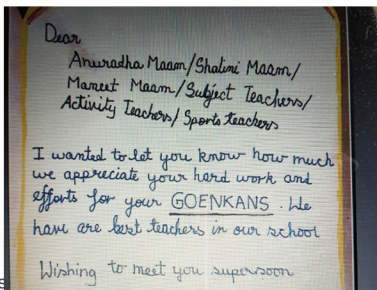 Dear
Anuradha Maam/Shalini Maam/
Maneet Maam/Subject Teachers/
Activity Teachers/Sports teachers
I wanted to let you know how much
we appreciate your hard work and
efforts for your GOENKANS. We
have are best teachers in our school
Wishing to meet you supersoon